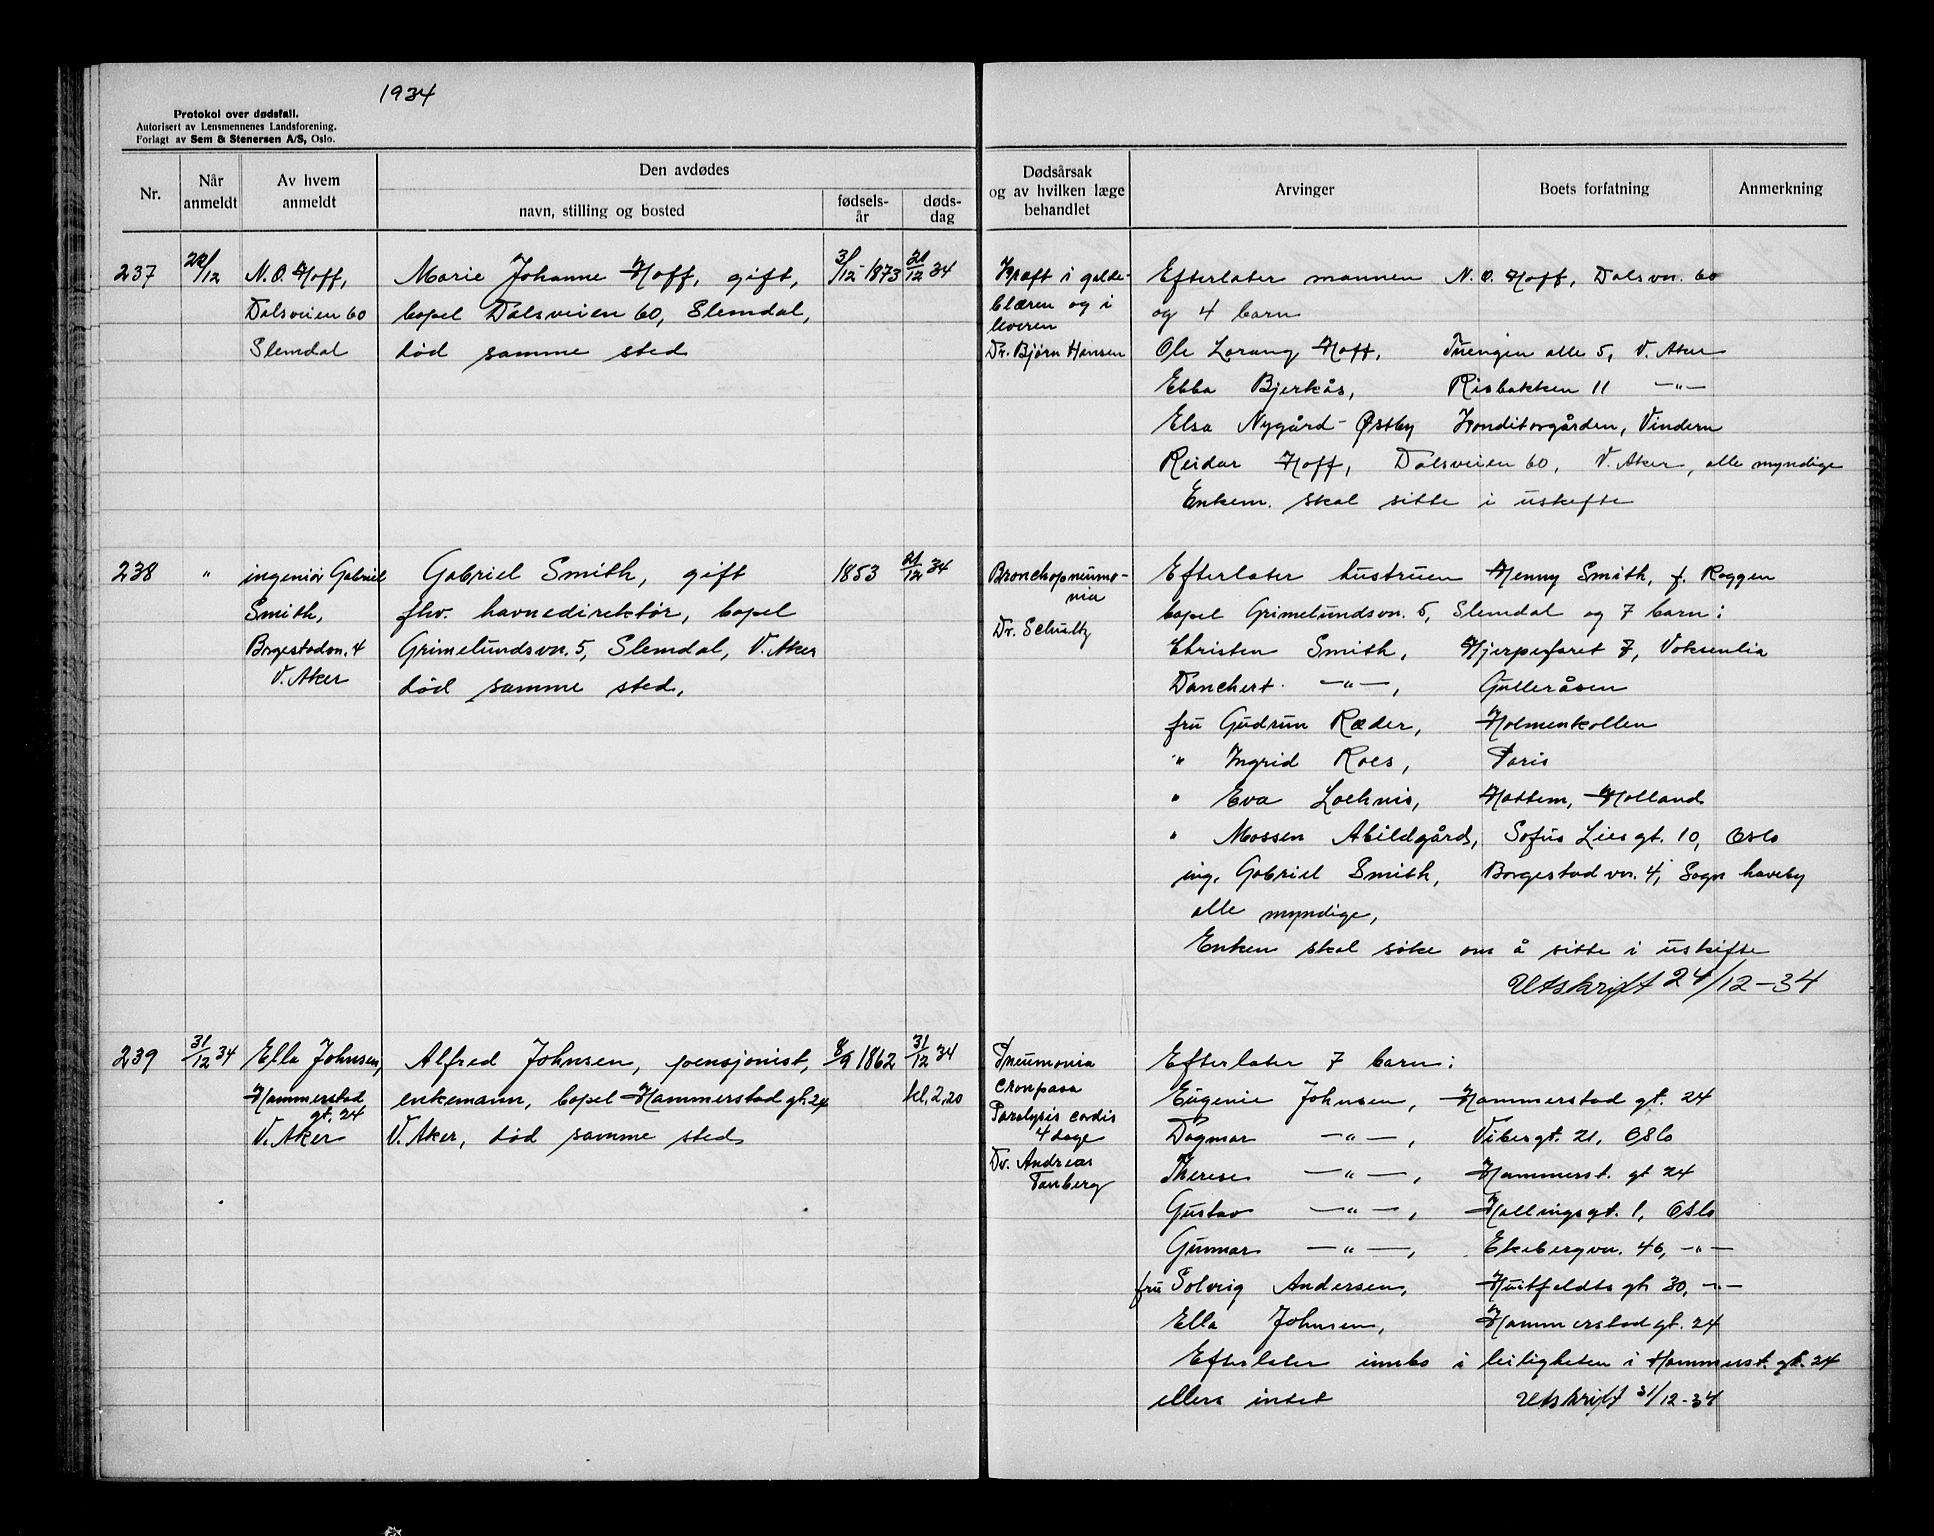 1934
Protokol over dødsfall.
Autorisert av Lensmennenes Landsforening.
Forlagt av Sem & Stenersen A/S, Oslo.
Nr.
Når anmeldt
Av hvem anmeldt
Den avdødes
navn, stilling og bosted
fødsels-år
døds-dag
Dødsårsak og av hvilken læge behandlet
Arvinger
Boets forfatning
Anmerkning
237
22/12
N. O. Hoff,
Dalsveien 60
Slemdal
Marie Johanne Hoff, gift,
bopel Dalsveien 60, Slemdal,
død samme sted
31/12-1873
21/12 34
Kræft i galde-
blæren og i
leveren
Dr. Bjørn Hansen
Efterlater mannen N. O. Hoff, Dalsvn. 60
og 4 barn
Ole Lorang Hoff, Tuengen alle 5, V. Aker
Ebba Bjerkås, Risbakken 11 —"—
Elsa Nygård-Østby Konditorgården, Vindern
Reidar Hoff, Dalsveien 60, V. Aker, alle myndige
Enkem. skal sitte i uskifte
238
"
ingeniør Gabriel
Smith,
Borgestadvn. 4
V. Aker
Gabriel Smith, gift
fhv. havnedirektør, bopel
Grimelundsvn. 5, Slemdal, V. Aker
død samme sted.
1853
21/12 34
Bronchopneumo-
nia
Dr. Schultz
Efterlater hustruen Henny Smith, f. Roggen
bopel Grimelundsvn. 5, Slemdal og 7 barn:
Christen Smith, Hjerpefaret 7, Voksenlia
Danchert —"—, Gulleråsen
fru Gudrun Ræder, Holmenkollen
" Ingrid Roes, Paris
" Eva Loehnis, Hattem, Holland
" Mossen Abildgård, Sofus Lies gt. 10, Oslo
ing. Gabriel Smith, Borgestadvn. 4, Sogn haveby
alle myndige,
Enken skal søke om å sitte i uskifte
Utskrift 24/12-34
239
31/12 34
Ella Johnsen,
Hammerstad
gt. 24
V. Aker
Alfred Johnsen, pensjonist,
enkemann, bopel Hammerstad gt. 24
V. Aker, død samme sted
8/9 1862
31/12 34
kl. 2,20
Pneumonia
crouposa
Paralysis cordis
4 dage
Dr. Andreas
Tanberg
Efterlater 7 barn:
Eugenie Johnsen, Hammerstad gt. 24
Dagmar —"—, Vibesgt. 21, Oslo
Therese —"—, Hammerst. gt 24
Gustav —"—, Hallingsgt. 1, Oslo
Gunnar —"—, Ekebergvn. 46, —"—
fru Solveig Andersen, Huitfeldts gt. 30, —"—
Ella Johnsen, Hammerstad gt. 24
Efterlater innbo i leiligheten i Hammerst. gt. 24
ellers intet
Utskrift 31/12-34